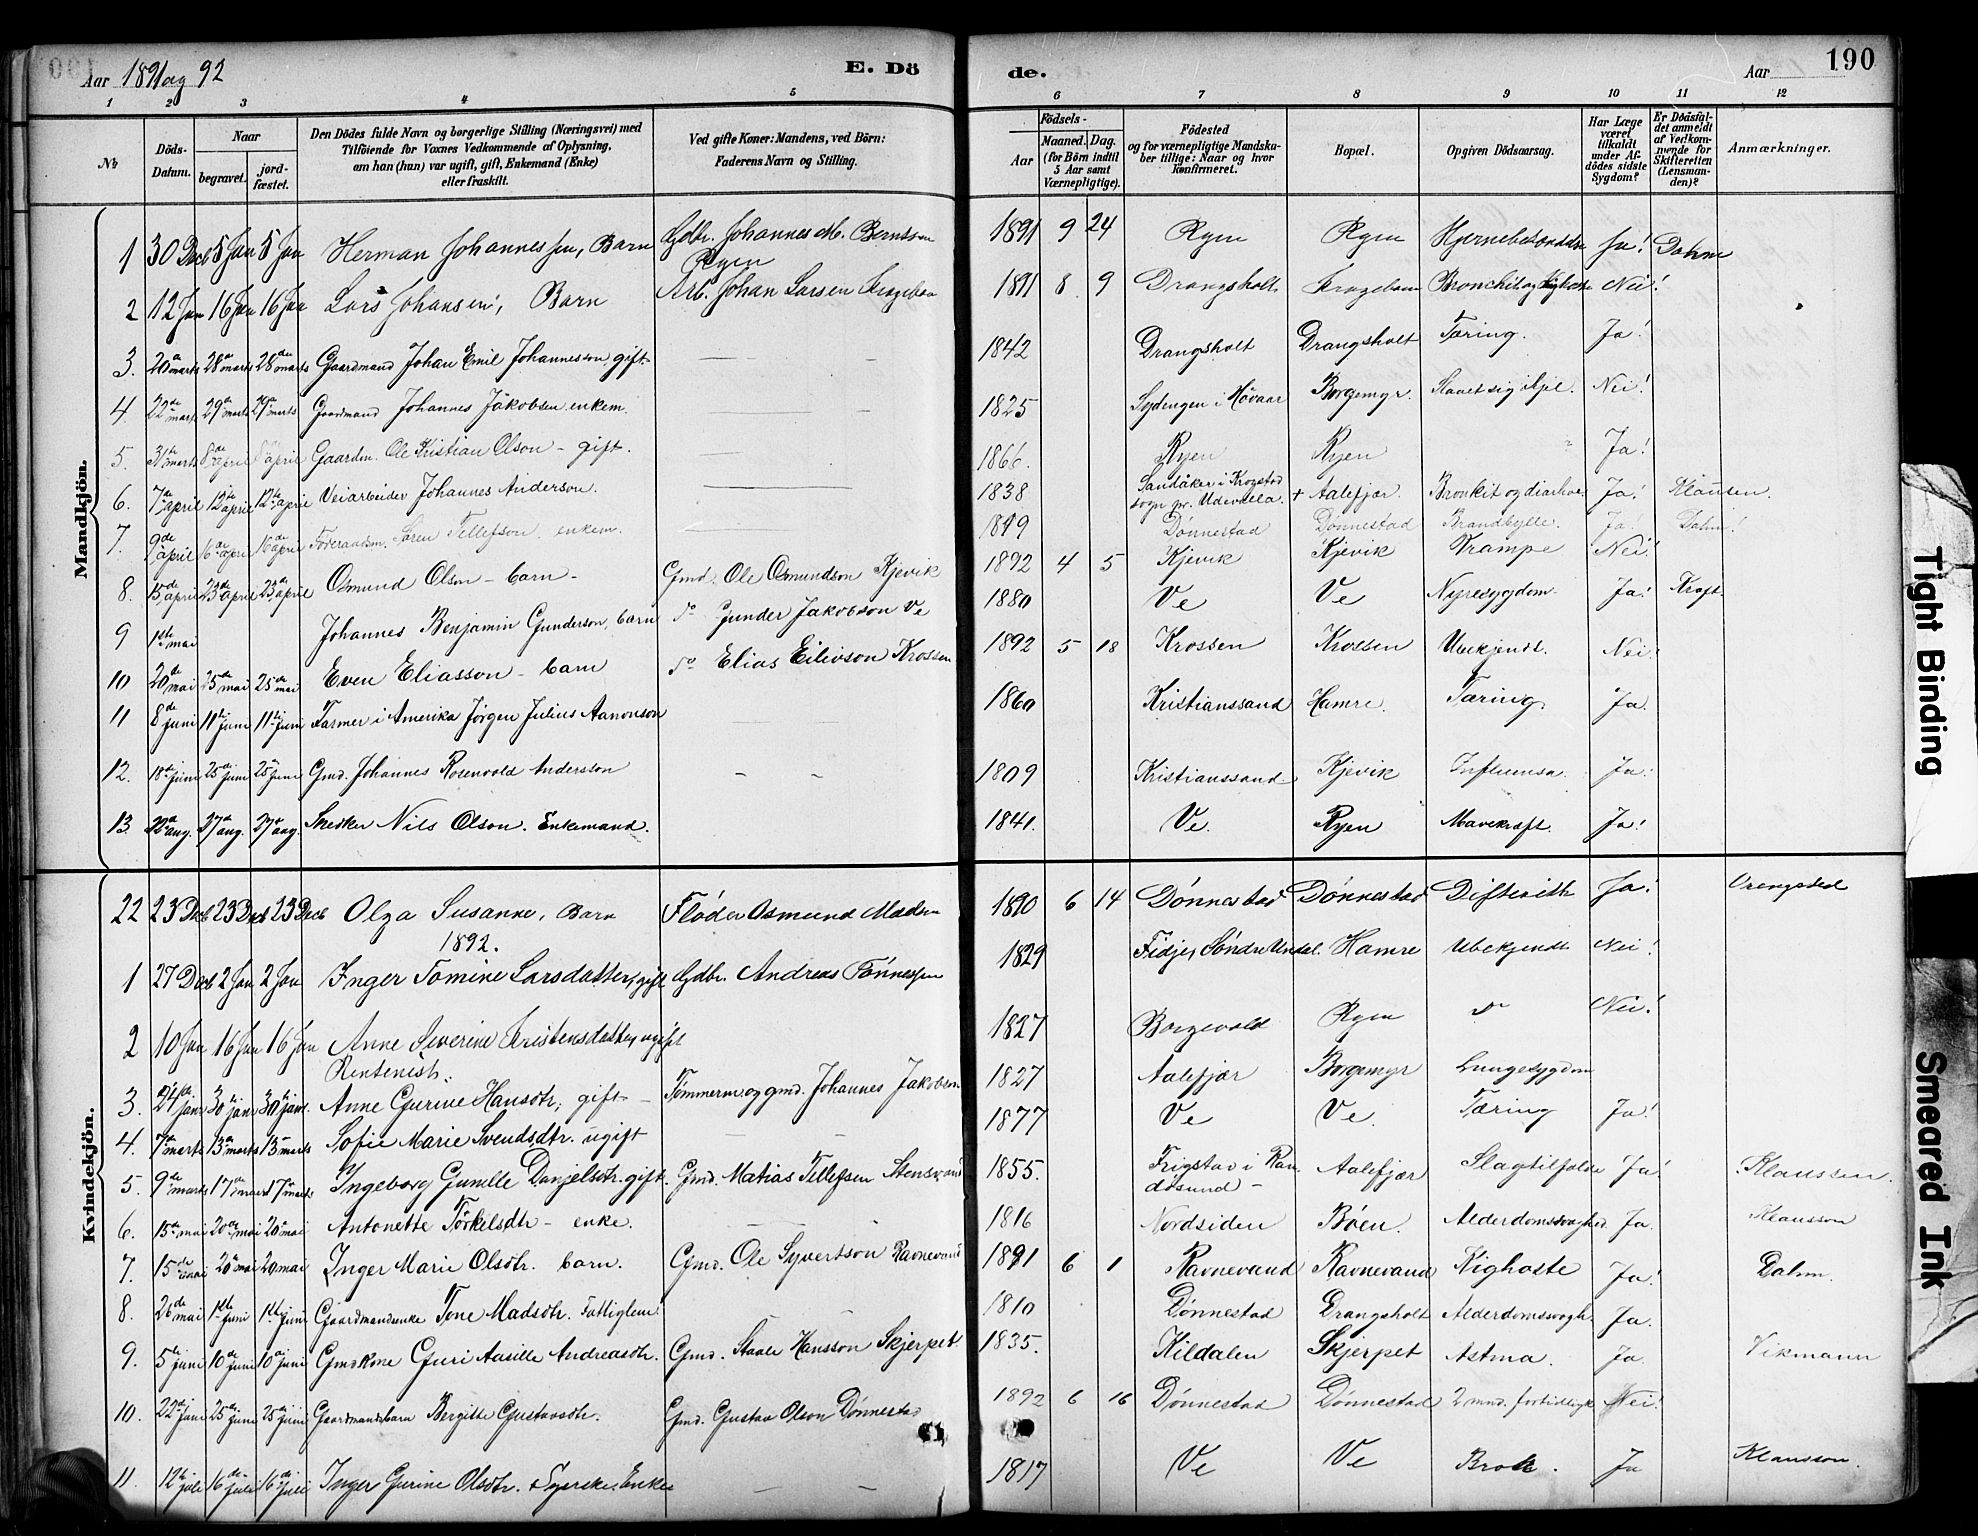 Aar 1891 og 92
E. Dö
de.
Aar
190
1 2 3 4 5 6 7 8 9 10 11 12
No
Döds-Datum.
Naar
begravet.
jord-fæstet.
Den Dödes fulde Navn og borgerlige Stilling (Næringsvei) med
Tilföiende for Voxnes Vedkommende af Oplysning,
om han (hun) var ugift, gift, Enkemand (Enke)
eller fraskilt.
Ved gifte Koner: Mandens, ved Börn:
Faderens Navn og Stilling.
Födsels-
Aar
Maaned. Dag.
(for Börn indtil
5 Aar samt
Værnepligtige).
Födested
og for værnepligtige Mandska-
ber tillige: Naar og hvor
konfirmeret.
Bopæl.
Opgiven Dödsaarsag.
Har Læge
været
tilkaldt
under Af-
dödes sidste
Sygdom?
Er Dödsfal-
det anmeldt
af Vedkom-
mende for
Skifteretten
(Lensman-
den)?
Anmærkninger.
Mandkjön.
1 30 Decb 5 Jan 5 Jan Herman Johannessen, Barn Gdbr. Johannes M. Berntsen Ryen 1891 9 24 Ryen Ryen Ja! Dahm
2 12 Jan 16 Jan 16 Jan Lars Johansen, Barn Arb. Johan Larsen 1891 8 9 Drangsholt Bronchit og Kighoste Nei!
3. 20de marts 28de marts 28de marts Gaardmand Johan Emil Johannesson, gift – – 1842 Drangsholt Drangsholt Tæring. Ja!
4. 22de marts 29de marts 29de marts Gaardmand Johannes Jakobsen enkem. 1825 Sydengen i Høvaag Borgemyr. Slaaet sig ihjel. Nei!
5. 31te marts 8de april 8de april Gaardm. Ole Kristian Olson – gift. 1866. Ryen Ryen Ja!
6. 7de april 12te april 12te april Veiarbeider Johannes Anderson. 1838 Sandåker i Krogstad sogn pr. Udevalla. + Aalefjær. Bronkit og diarhoe. Ja! Klausen.
7. 9de april 16de april 16de april Föderaadsm. Søren Tellefson, enkem. 1819 Dønnestad Dønnestad Brandbylle. Ja! Dahm!
8. 15de april 23de april 23de april Osmund Olson – barn – Gmd. Ole Osmundson Kjevik 1892 4 5 Kjevik Kjevik Krampe Nei!
9 1ste mai Johannes Benjamin Gunderson, barn do Gunder Jakobson Ve 1880 Ve Ve Nyresygdom. Ja! Kraft
10 20de mai 25de mai 25de mai Even Eliasson – barn do Elias Eilivson Krossen 1892 5 18 Krossen Krossen Ubekjendt. Nei!
11 8de juni 11te juni 11te juni Farmer i Amerika Jørgen Julius Aanonson 1860 Kristianssand Hamre. Tæring. Ja.
12. 18de juni 25de juni 25 juni Gmd. Johannes Rosenvold Andersson – – 1809 Kristianssand Kjevik Influensa. Ja!
13. 22de aug. 27de aug. 27de aug. Snedker Nils Olson. Enkemand. 1841. Ve. Ryen Mavekræft. Ja!
Kvindekjön.
22 23 Decb 23 Decb 23 Decb Olga Susanne, Barn Fløder Osmund Madsen 1890 6 14 Dønnestad Dønnestad Difterith Ja!
1892.
1 27 Decb 2 Jan 2 Jan Inger Tomine Larsdatter, gift Gdbr. Andreas Tønnessen 1829 Fidje, Søndre Undal. Hamre Ubekjendt Nei!
2 10 Jan 16 Jan 16 Jan Anne Severine Kristensdatter, ugift Rentenist. 1827 Borgevold Ryen do Nei!
3. 24de jan 30te jan 30te jan. Anne Gurine Hansdtr, gift – Tømmerm. og gmd. Johannes Jakobson 1827 Aalefjær Borgemyr Lungesygdom
4. 7de marts 13de marts 13 marts Sofie Marie Svendsdtr. ugift 1877 Ve Ve. Tæring Ja!
5. 9de marts 17de marts 17 marts Ingeborg Gunille Danjelsdtr. gift. Gmd. Matias Tellefsen Stensvand 1855. Frigstad i Randøsund – Aalefjær Slagtilfælde Ja! Klausson.
6. 15de mai 20de mai 20 mai Antonette Torkelsdtr – enke. 1816 Nordsiden Bøen. Alderdomssvaghed. Ja. Klausson
7. 15de mai 20de mai 20 mai Inger Marie Olsdtr. barn. Gmd. Ole Syvertsson Ravnevand 1891 6 1 Ravnevand Ravnevand Kighoste Ja! Dahm.
8. 26de mai 1ste juni 1ste juni Gaardmandsenke Tone Madsdtr. Fattiglem. 1810 Dønnestad Drangsholt Alderdomssvagh. Ja.
9. 5te juni 10de juni 10de juni Gmdkone Guri Aasille Andreasdtr. Gmd. Staale Hansson Skjerpet 1835. Kildalen Skjerpet Astma. Ja. Vikmann
10. 22de juni 25de juni 25de juni Gaardmandsbarn Bergitte Gustavsdtr. Gmd. Gustav Olson Dønnestad 1892 6 16 Dønnestad Dønnestad 2 mnd. fortidligt Nei!
11. 12te juli 16de juli 16de juli Inger Gurine Olsdtr. Enke – – 1817 Ve Ve Brok. Ja Klausson.
Tight Binding
Smeared Ink